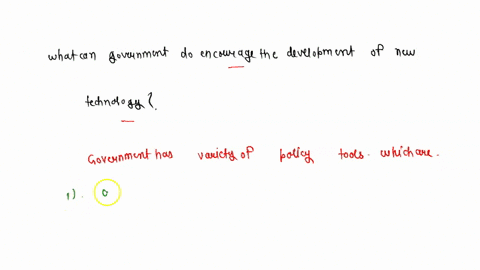 what can government do encourage the development of new
technology?.
Government has variety of policy tools. which are.
1). o